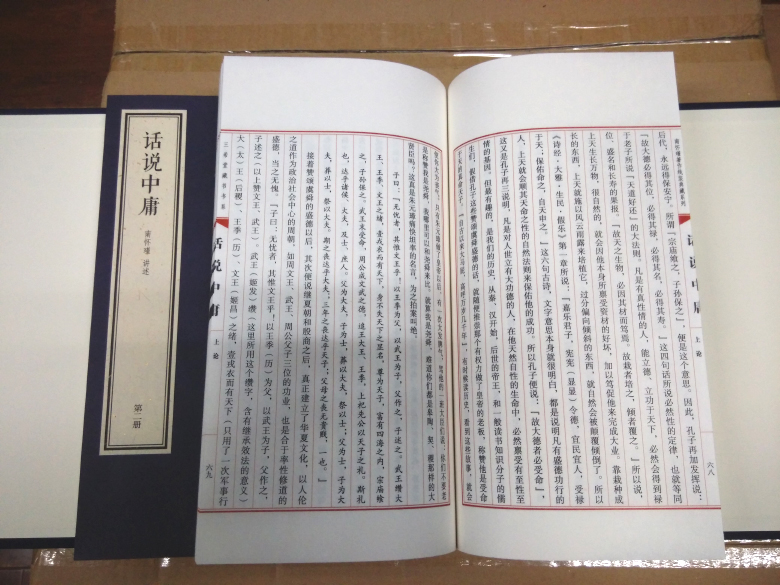 话说中庸
南怀瑾 讲述
第二册
话说中庸
上论
六八
后代,永远得保安宁,所谓“宗庙飨之,子孙保之”,便是这个意思。因此,孔子再加发挥说:
“故大德必得其位,必得其禄,必得其名,必得其寿。”这四句话所说必然性的定律,也就等同
于老子所说“天道好还”的大法则,凡是有真性情的人,能立德、立功于天下,必然会得到禄
位、盛名和长寿的果报。“故天之生物,必因其材而笃焉。故栽者培之,倾者覆之。”所以说,
上天生长万物,很自然的,就会因他本身所禀受管材的好坏,加以笃促他来完成大业。靠栽种成
长的东西,上天就施以风云雨露来培植它,过分偏向倾斜的东西,就自然会被颠覆倾倒了。所以
《诗经·大雅·生民·假乐》第一章所说:“嘉乐君子,宪宪(显显)令德,宜民宜人,受禄
于天;保佑命之,自天申之。”这六句古诗,文字意思本身就很明白,都是说明凡有盛德功行的
人,上天就会顺其天命之性的自然法则来保佑他的成功。所以孔子便说:“故大德者必受命”,
这又是孔子再三说明,凡是对人世立有大功德的人,在他天然自性的生命中,必然禀受有至性至
情的基因。但最有趣的,是我们的历史,从秦、汉开始,后世的帝王,和一般读书知识分子的儒
生们,假借孔子这些赞颂虞舜盛德的话,就随便推崇那个有权力做了皇帝的老板,称赞他是受命
于天的真命天子。“自古以来大马屁,高呼万岁几千年”,有时候读历史,看到这些故事,就会
是称赞我是尧舜,我哪里可以和尧舜来比,就算我是尧舜,难道你们都是皋陶、契、稷那样的大
贤臣吗?这真是朱元璋痛快坦率的名言,为之拍案叫绝。
子曰:“无忧者,其惟文王乎!以王季为父,以武王为子,父作之,子述之。武王缵大
王、王季、文王之绪,壹戎衣而有天下,身不失天下之显名,尊为天子,富有四海之内,宗庙飨
之,子孙保之。武王末受命,周公成文武之德,追王大王、王季,上祀先公以天子之礼。斯礼
也,达乎诸侯、大夫,及士、庶人。父为大夫,子为士,葬以大夫,祭以士;父为士,子为大
夫,葬以士,祭以大夫。期之丧达乎大夫,三年之丧达乎天子,父母之丧无贵贱,一也。”
接着赞颂虞舜的盛德以后,其次便说继夏朝和殷商之后,真正建立了华夏文化,以人伦
之道作为政治社会中心的周朝,如周文王、武王、周公父子三位的功业,也是合于率性修道的
盛德,当之无愧。“子曰:无忧者,其惟文王乎!以王季(历)为父,以武王为子,父作之,
子述之(以上赞文王、武王)。武王(姬发)缵(这里所用这个缵字,含有继承效法的意义)
大(太)王(后稷)、王季(历)、文王(姬昌)之绪,壹戎衣而有天下(只用了一次军事行
三希堂藏书书系
话说中庸
上论
六九